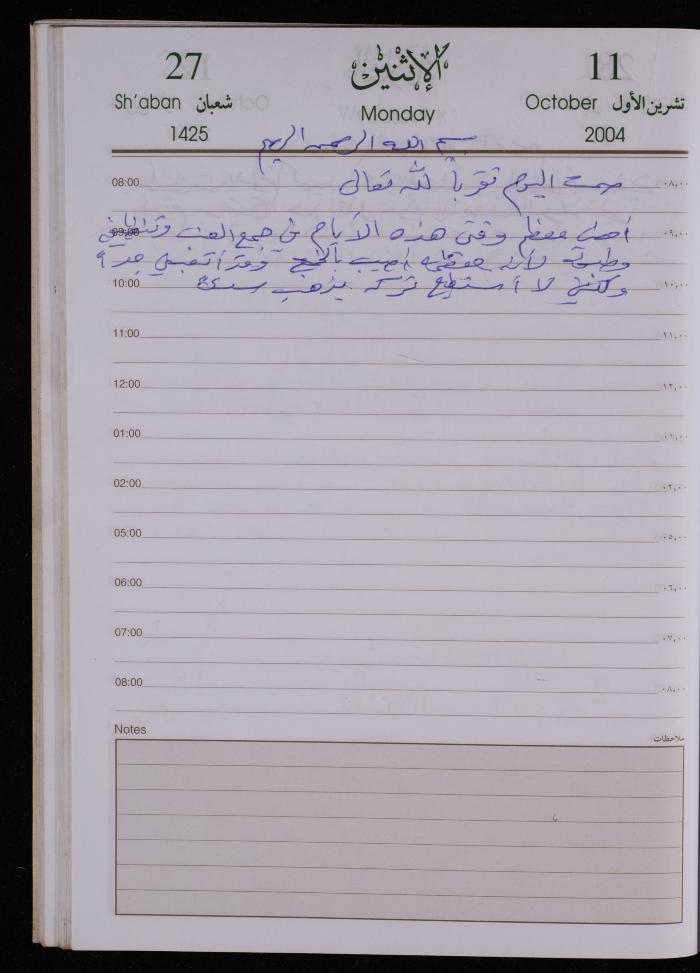 27 الإثنين 11
Sh'aban شعبان Monday October تشرين الأول
1425 2004
بسم الله الرحمن الرحيم
08:00 صمت اليوم تقرباً لله تعالى ٠٨,٠٠
09:00 أصرف معظم وقتي هذه الأيام في جمع العنب وتنظيفي ٠٩,٠٠
لأنه معظمه أصيب وقد أتعبني جداً
10:00 ولكنني لا أستطيع تركه يذهب سدىً ١٠,٠٠
11:00 ١١,٠٠
12:00 ١٢,٠٠
01:00 ٠١,٠٠
02:00 ٠٢,٠٠
05:00 ٠٥,٠٠
06:00 ٠٦,٠٠
07:00 ٠٧,٠٠
08:00 ٠٨,٠٠
Notes ملاحظات